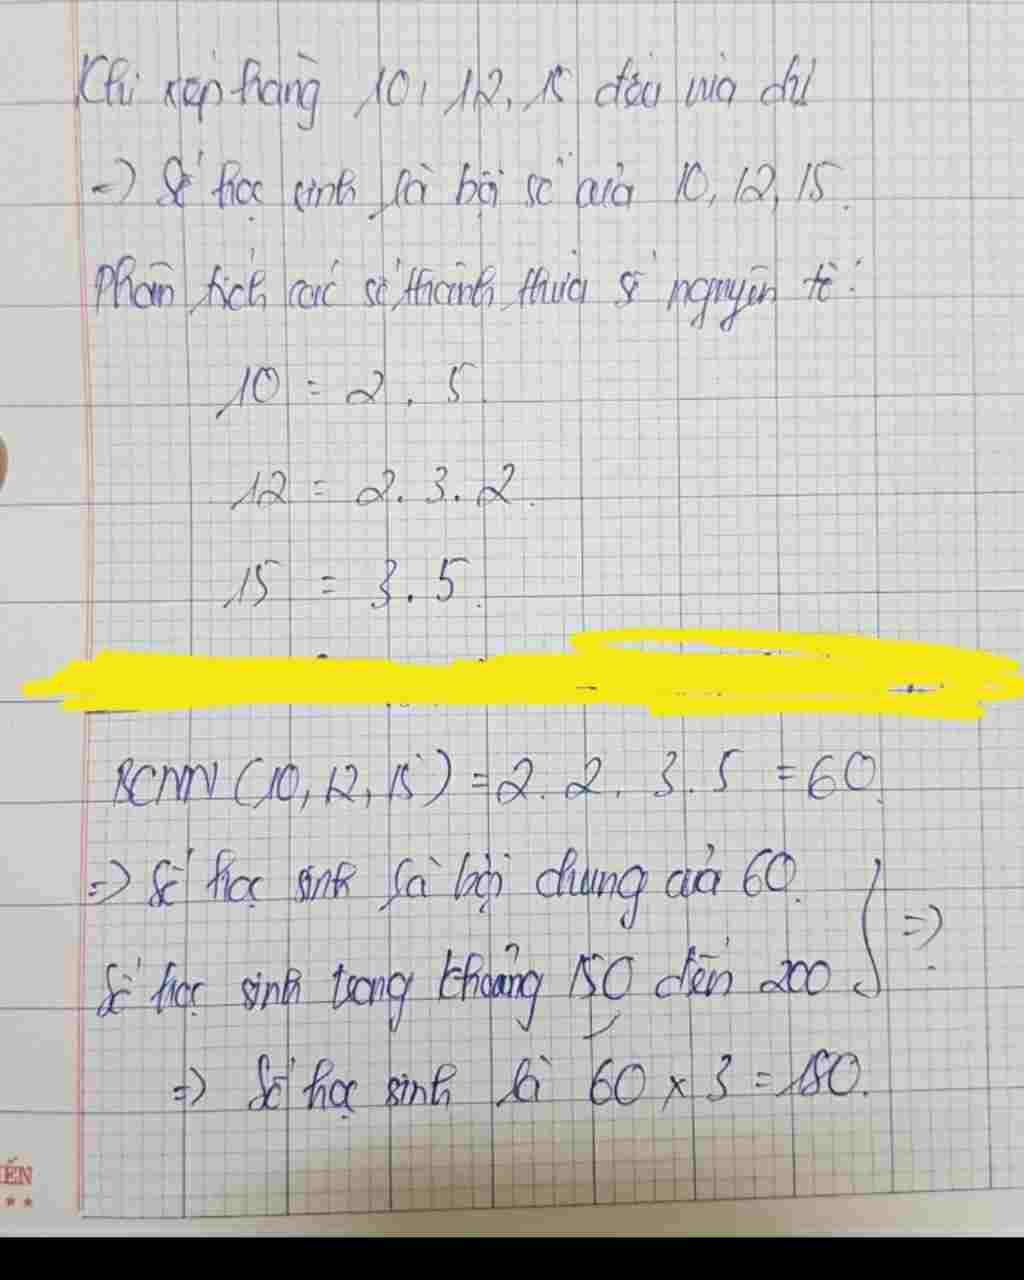 Khi xếp hàng 10, 12, 15 đều vừa đủ
=) Số học sinh là bội số của 10, 12, 15.
Phân tích các số thành thừa số nguyên tố:
10 = 2 . 5.
12 = 2. 3. 2.
15 = 3. 5.
BCNN (10, 12, 15) = 2. 2. 3. 5 = 60.
=> Số học sinh là bội chung của 60.
Số học sinh trong khoảng 150 đến 200 } =>
=> Số học sinh là 60 x 3 = 180.
ẾN
★ ★